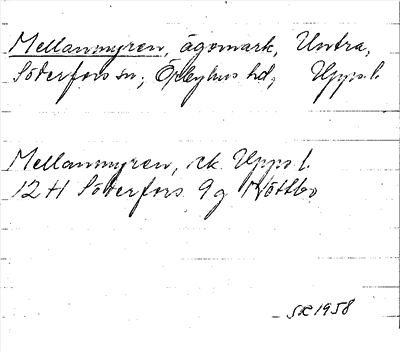 Mellanmyren, ägomark, Untra,
Söderfors sn, Örbyhus hd, Upps. l.
Mellanmyren, ek. Upps l.
12 H Söderfors 9 g Nöttbo
SÆ 1958